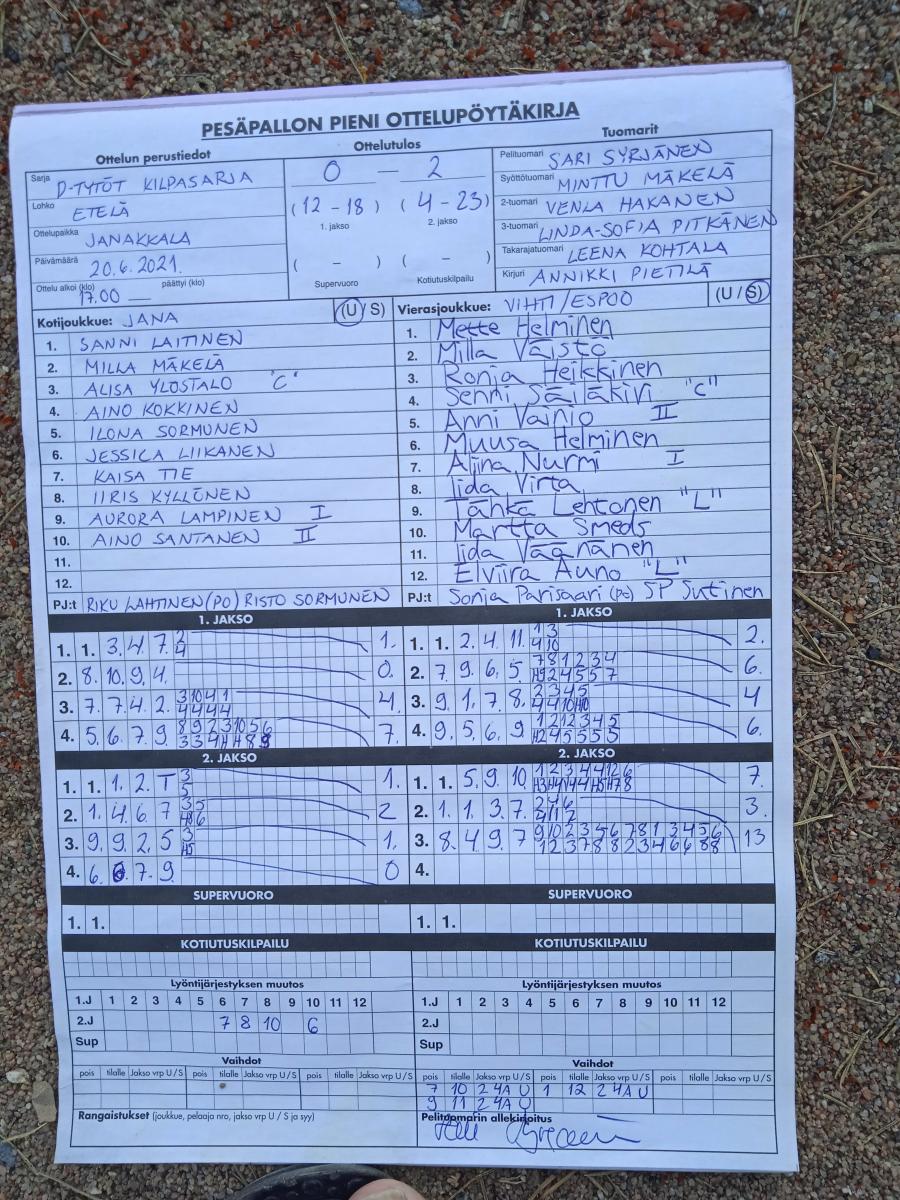 PESÄPALLON PIENI OTTELUPÖYTÄKIRJA
Ottelun perustiedot
Sarja D-TYTÖT KILPASARJA
Lohko ETELÄ
Ottelupaikka JANAKKALA
Päivämäärä 20.6.2021.
Ottelu alkoi (klo) 17.00 — päättyi (klo)
Ottelutulos
0 — 2
(12 - 18) (4 - 23)
1. jakso 2. jakso
( - ) ( - )
Supervuoro Kotiutuskilpailu
Tuomarit
Pelituomari SARI SYRJÄNEN
Syöttötuomari MINTTU MÄKELÄ
2-tuomari VENLA HAKANEN
3-tuomari LINDA-SOFIA PITKÄNEN
Takarajatuomari LEENA KOHTALA
Kirjuri ANNIKKI PIETILÄ
Kotijoukkue: JANA (U/S)
1. SANNI LAITINEN
2. MILLA MÄKELÄ
3. ALISA YLÖSTALO "C"
4. AINO KOKKINEN
5. ILONA SORMUNEN
6. JESSICA LIIKANEN
7. KAISA TIE
8. IIRIS KYLLÖNEN
9. AURORA LAMPINEN I
10. AINO SANTANEN II
11.
12.
PJ:t RIKU LAHTINEN (PO) RISTO SORMUNEN
Vierasjoukkue: VIHTI/ESPOO (U/S)
1. Mette Helminen
2. Milla Väistö
3. Ronja Heikkinen
4. Senni Säiläkivi "C"
5. Anni Vainio II
6. Muusa Helminen
7. Aliina Nurmi I
8. Iida Virta
9. Tähkä Lehtonen "L"
10. Martta Smeds
11. Iida Väänänen
12. Elviira Auno "L"
PJ:t Sonja Parisaari (po) SP Sutinen
1. JAKSO
1. 1. 3. 4. 7. 2 1.
4
2. 8. 10. 9. 4. 0.
3. 7. 7. 4. 2. 3 10 4 1 4.
4 4 4 4
4. 5. 6. 7. 9. 8 9 2 3 10 5 6 7.
2. JAKSO
1. 1. 1. 2. T 3 1.
5
2. 1. 4. 6. 7 3 5 2
3. 9. 9. 2. 5 3 1.
4. 6. 7. 9. 0
1. JAKSO
1. 1. 2. 4. 11. 1 3 2.
4 10
2. 7. 9. 6. 5. 7 8 1 2 3 4 6.
3. 9. 1. 7. 8. 2 3 4 5 4
4. 9. 5. 6. 9. 1 2 1 2 3 4 5 6.
2. JAKSO
1. 1. 5. 9. 10. 1 2 3 4 4 12 6 7.
2. 1. 1. 3. 7. 2 4 6 3.
4 11 2
3. 8. 4. 9. 7 9 10 2 3 5 6 7 8 1 3 4 5 6 13
1 2 3 7 8 8 2 3 4 6 6 8 8
4.
SUPERVUORO
1. 1.
SUPERVUORO
1. 1.
KOTIUTUSKILPAILU
KOTIUTUSKILPAILU
Lyöntijärjestyksen muutos
1.J 1 2 3 4 5 6 7 8 9 10 11 12
2.J 7 8 10 6
Sup
Lyöntijärjestyksen muutos
1.J 1 2 3 4 5 6 7 8 9 10 11 12
2.J
Sup
Vaihdot
pois tilalle Jakso vrp U/S pois tilalle Jakso vrp U/S pois tilalle Jakso vrp U/S
Vaihdot
pois tilalle Jakso vrp U/S pois tilalle Jakso vrp U/S pois tilalle Jakso vrp U/S
7 10 2 4A U 1 12 2 4A U
9 11 2 4A U
Rangaistukset (joukkue, pelaaja nro, jakso vrp U / S ja syy)
Pelituomarin allekirjoitus